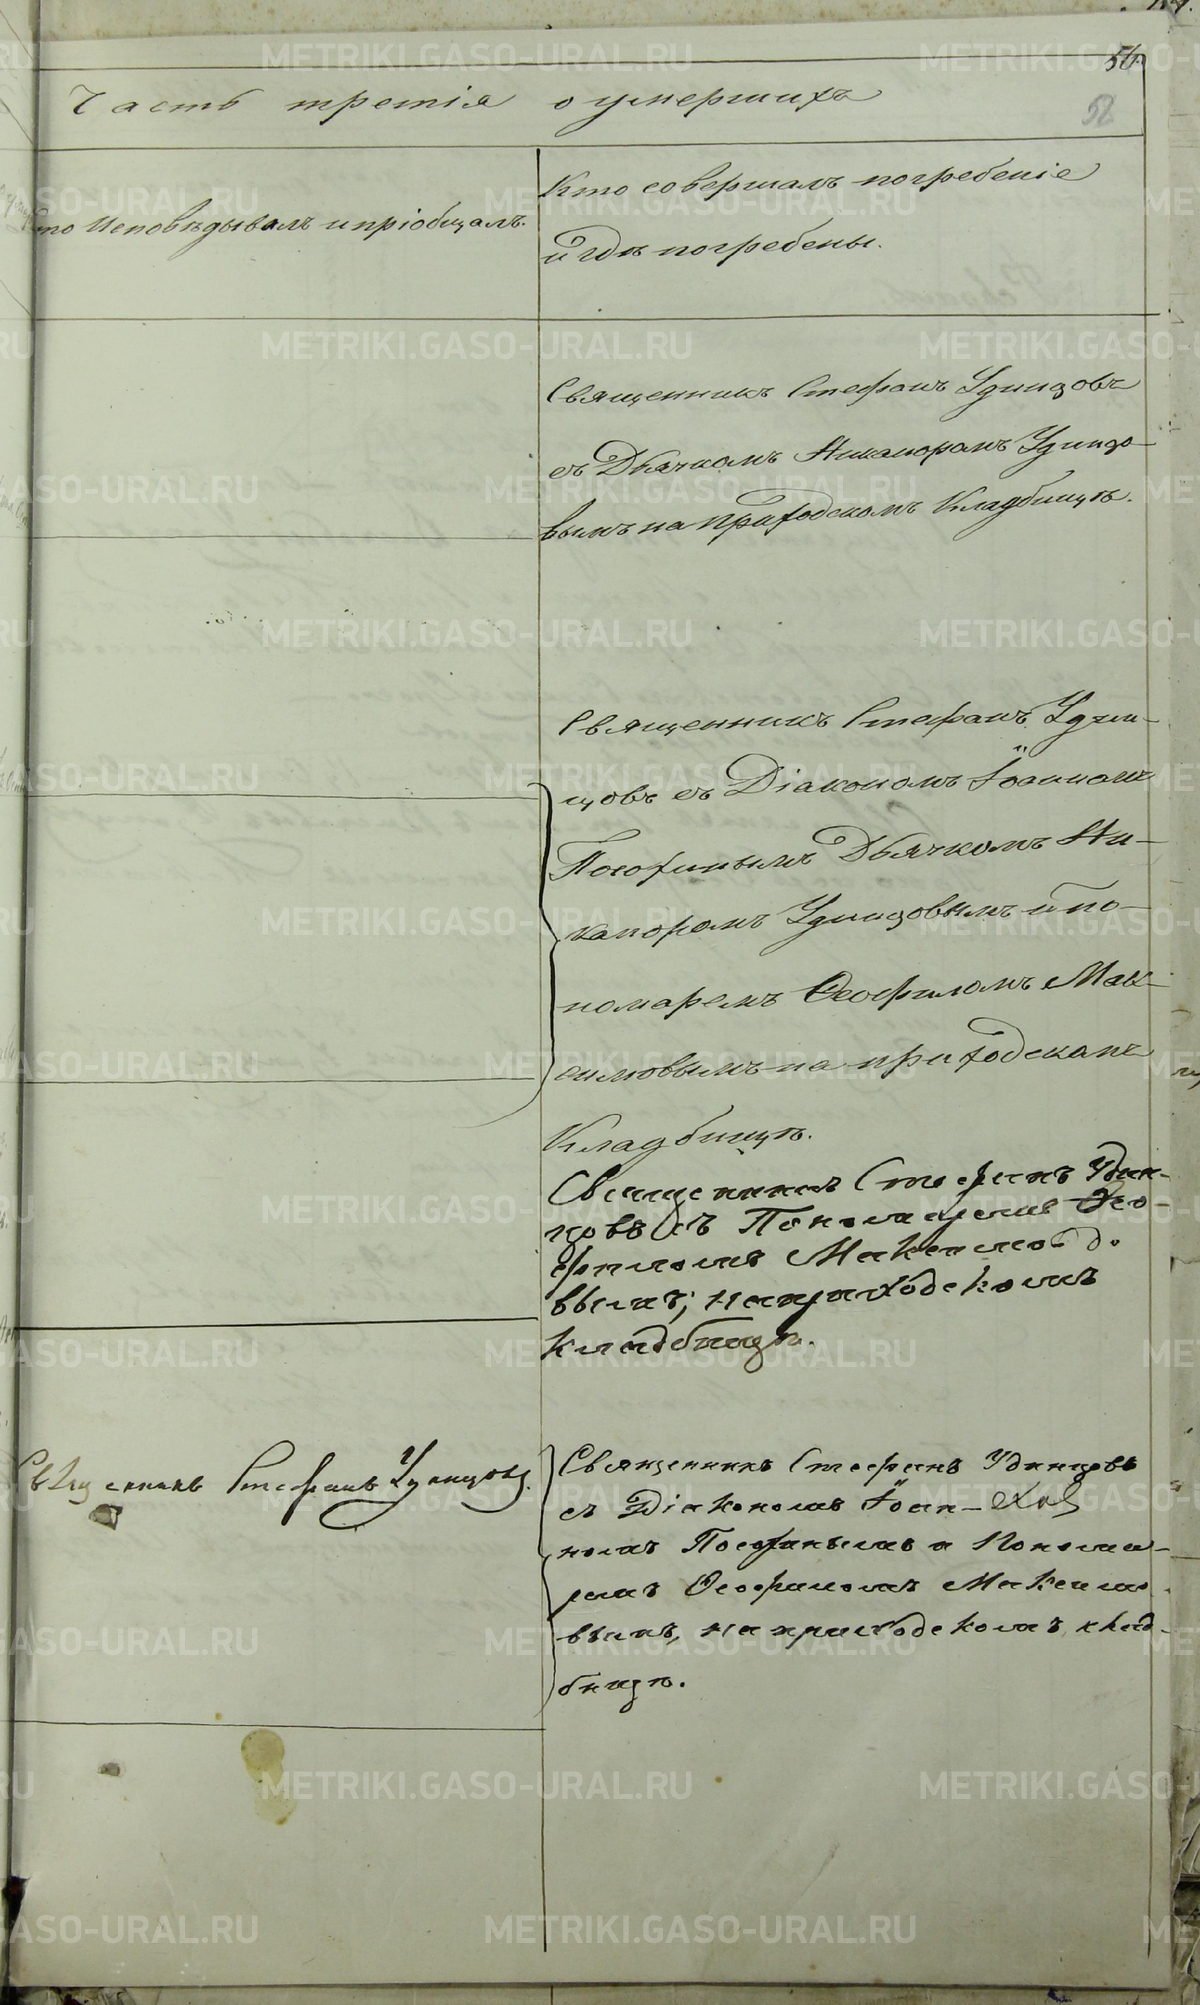 56
52
Часть третія о умершихъ
Кто Исповѣдывалъ и пріобщалъ.
Кто совершалъ погребеніе
и гдѣ погребены.
Священникъ Стефанъ Удинцовъ
съ Дьячкомъ Никаноромъ Удинцо-
вымъ на приходскомъ Кладбищѣ.
Священникъ Стефанъ Удин-
цовъ съ Діакономъ Іоанномъ
Дьячкомъ Ни-
каноромъ Удинцовымъ и по-
номаремъ Ѳеофиломъ Мак-
симовымъ на приходскомъ
Кладбищѣ.
Священникъ Стефанъ Удин-
цовъ съ Пономаремъ Ѳео-
филомъ Максимо-
вымъ, на приходскомъ
кладбищѣ.
Священникъ Стефанъ Удинцовъ.
Священникъ Стефанъ Удинцовъ
съ Діакономъ Іоан-
номъ и Понома-
ремъ Ѳеофиломъ Максимо-
вымъ, на приходскомъ клад-
бищѣ.
METRIKI.GASO-URAL.RU